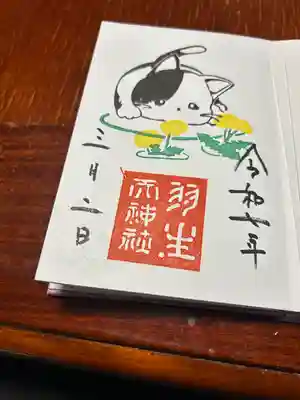 令和七年
羽生
天神社
三月二日